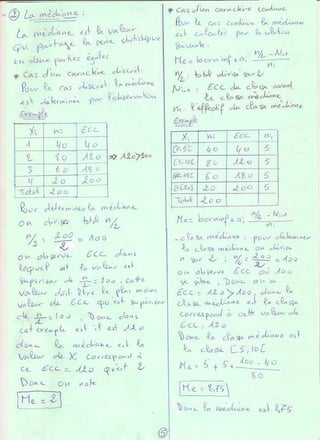 ② La médiane :
La médiane est la valeur
qui partage la série statistique
en deux parties égales
* Cas d'un caractère discret :
Pour le cas discret la médiane
est déterminée par l'observation
Exemple
Xi ni ECC
1 40 40
2 80 120 => 120>100
3 60 180
4 20 200
Total 200
Pour déterminer la médiane
on divise total n/2
n/2 = 200/2 = 100
on observe ECC dans
lequel et la valeur est
superieur de n/2 = 100, cette
valeur doit être le plus moins
valeur de ECC qui est superieur
de n/2 = 100, Donc dans
cet exemple est : il est 120
donc la médiane est la
valeur de Xi correspond à
ce ECC = 120 qui est 2
Donc on note
Me = 2
* Cas d'un caractère continue
Pour le cas continue la médiane
est calculer par la relation
Suivante :
Me = born inf + ai n/2 - Ni-1 / ni
n/2 : total divisé sur 2
Ni-1 : ECC du classe avant
le classe médiane
ni : l'effectif du classe médiane
Exemple
Xi ni ECC ai
[0,5[ 40 40 5
[5,10[ 80 120 5
[10,15[ 60 180 5
[15,20[ 20 200 5
Total 200
Me = born inf + ai n/2 - Ni-1 / ni
- classe médiane : pour déterminer
la classe médiane on divise
n sur 2 ; n/2 = 200/2 = 100
on observe ECC où 100
se situe. Donc on a
ECC = 120 > 100, donc la
classe médiane est la classe
correspond à cette valeur de
ECC : 120
Donc la classe médiane est
la classe [5,10[
Me = 5 + 5 × 100 - 40 / 80
Me = 8,75
Donc la médiane est 8,75
⑤